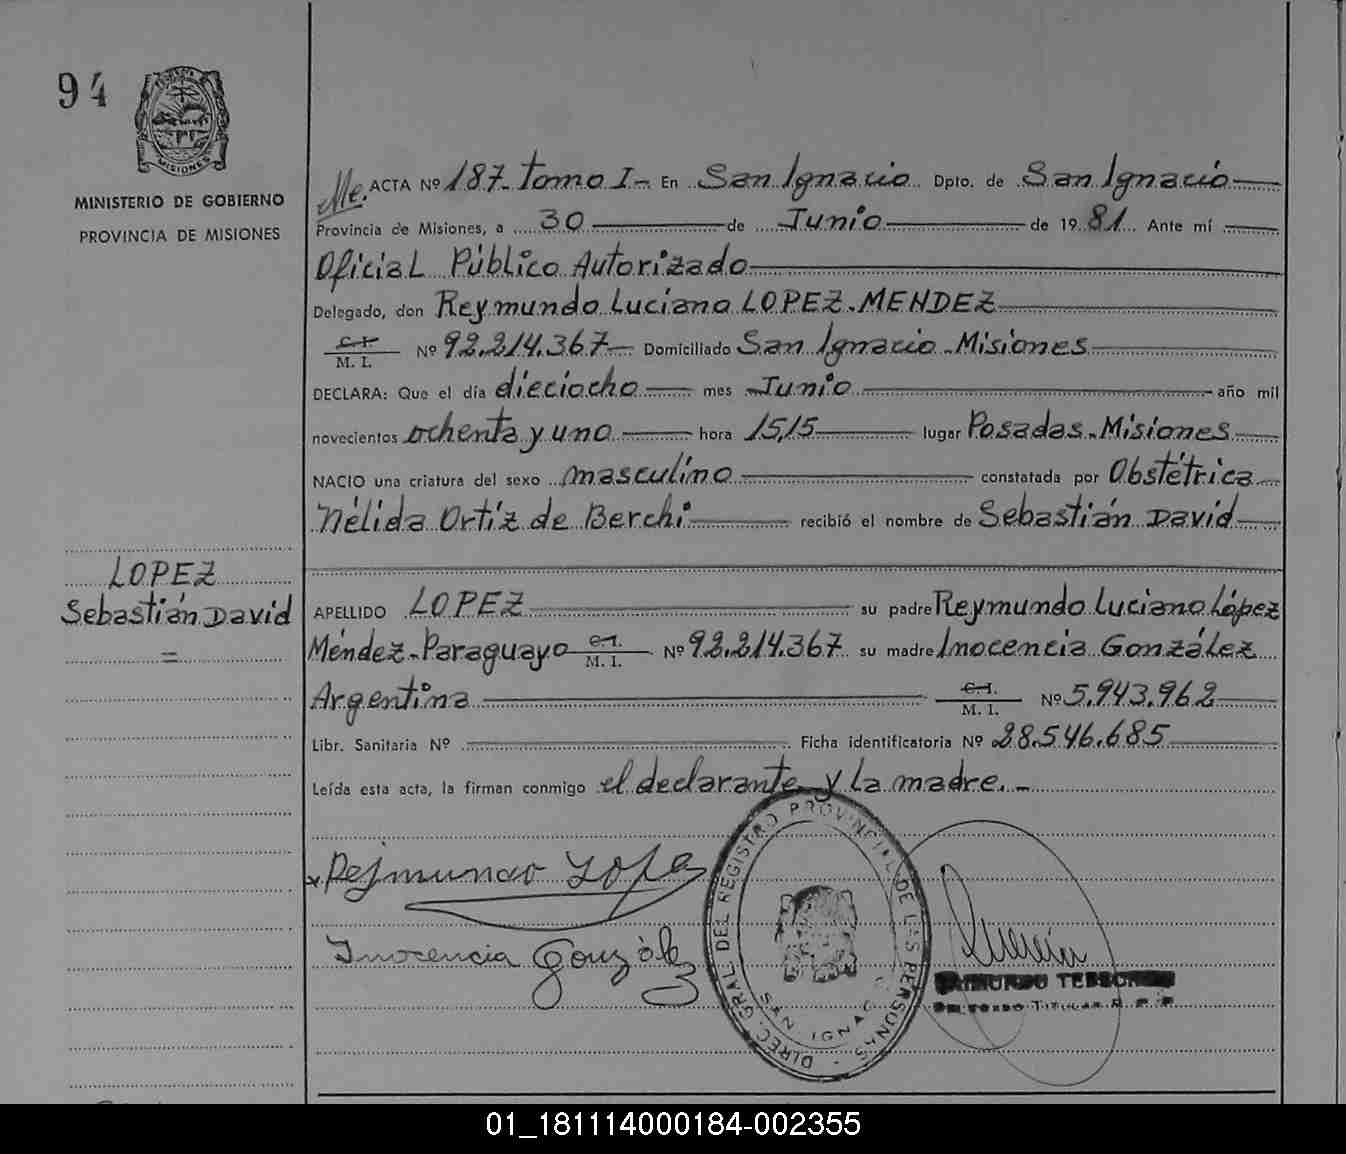 94
MISIONES
MINISTERIO DE GOBIERNO
PROVINCIA DE MISIONES
LOPEZ
Sebastián David
=
ACTA Nº 187. Tomo I.- En San Ignacio Dpto. de San Ignacio
Provincia de Misiones, a 30 de Junio de 1981. Ante mí
Oficial Público Autorizado
Delegado, don Reymundo Luciano LOPEZ. MENDEZ
C. I.
M. I. Nº 92.214.367 Domiciliado San Ignacio. Misiones
DECLARA: Que el día dieciocho mes Junio año mil
novecientos ochenta y uno hora 15,15 lugar Posadas. Misiones
NACIO una criatura del sexo masculino constatada por Obstétrica
Nélida Ortíz de Berchi recibió el nombre de Sebastián David
APELLIDO LOPEZ su padre Reymundo Luciano López
Méndez. Paraguayo C. I. M. I. Nº 92.214.367 su madre Inocencia González
Argentina C. I. M. I. Nº 5.943.962
Libr. Sanitaria Nº Ficha identificatoria Nº 28.546.685
Leída esta acta, la firman conmigo el declarante y la madre. -
x Rejmundo Lope
Inocencia González
DIREC. GRAL DEL REGISTRO PROVINCIAL DE LAS PERSONAS
SAN IGNACIO
01_181114000184-002355